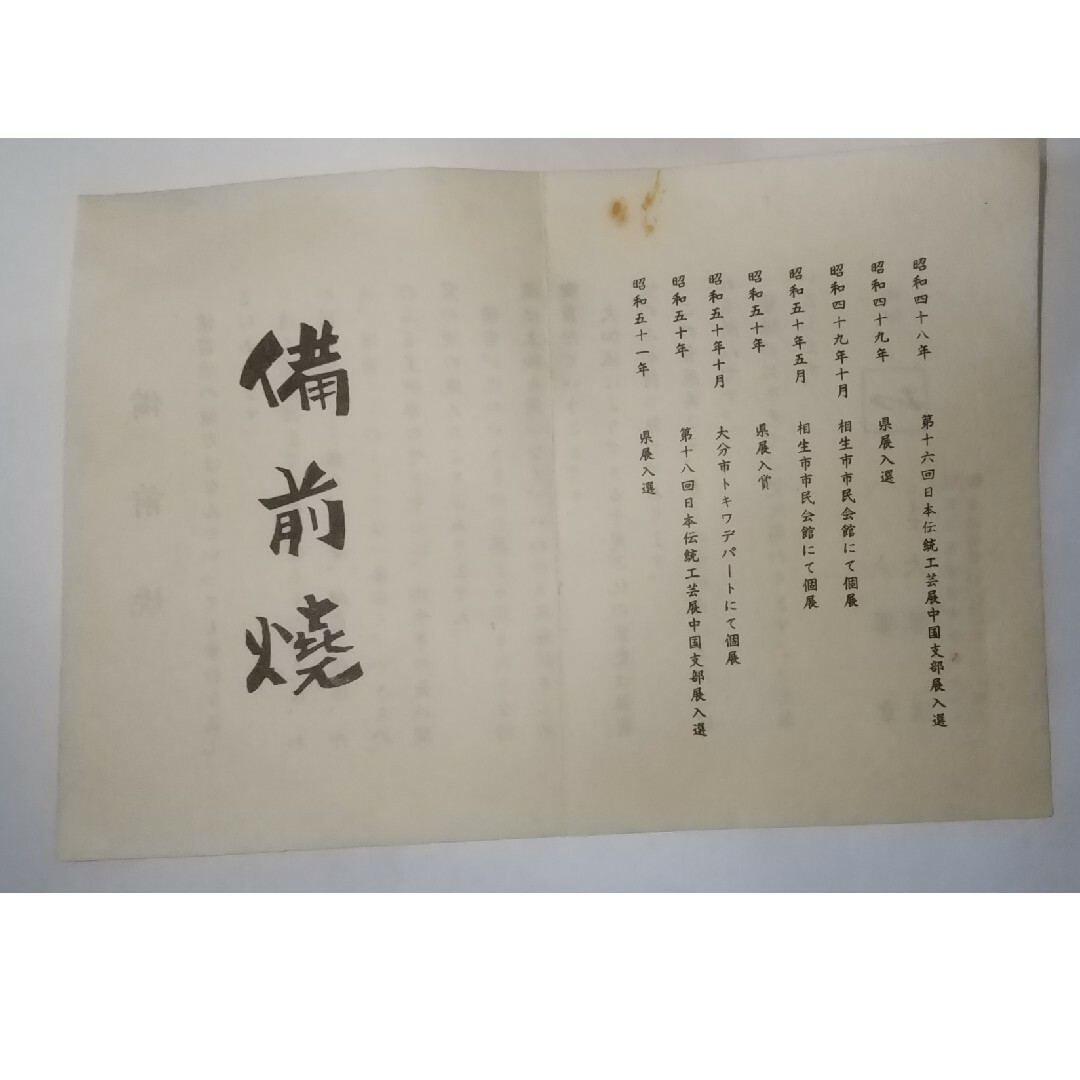 昭和四十八年 第十六回日本伝統工芸展中国支部展入選
昭和四十九年 県展入選
昭和四十九年十月 相生市市民会館にて個展
昭和五十年五月 相生市市民会館にて個展
昭和五十年 県展入賞
昭和五十年十月 大分市トキワデパートにて個展
昭和五十年 第十八回日本伝統工芸展中国支部展入選
昭和五十一年 県展入選
備前燒